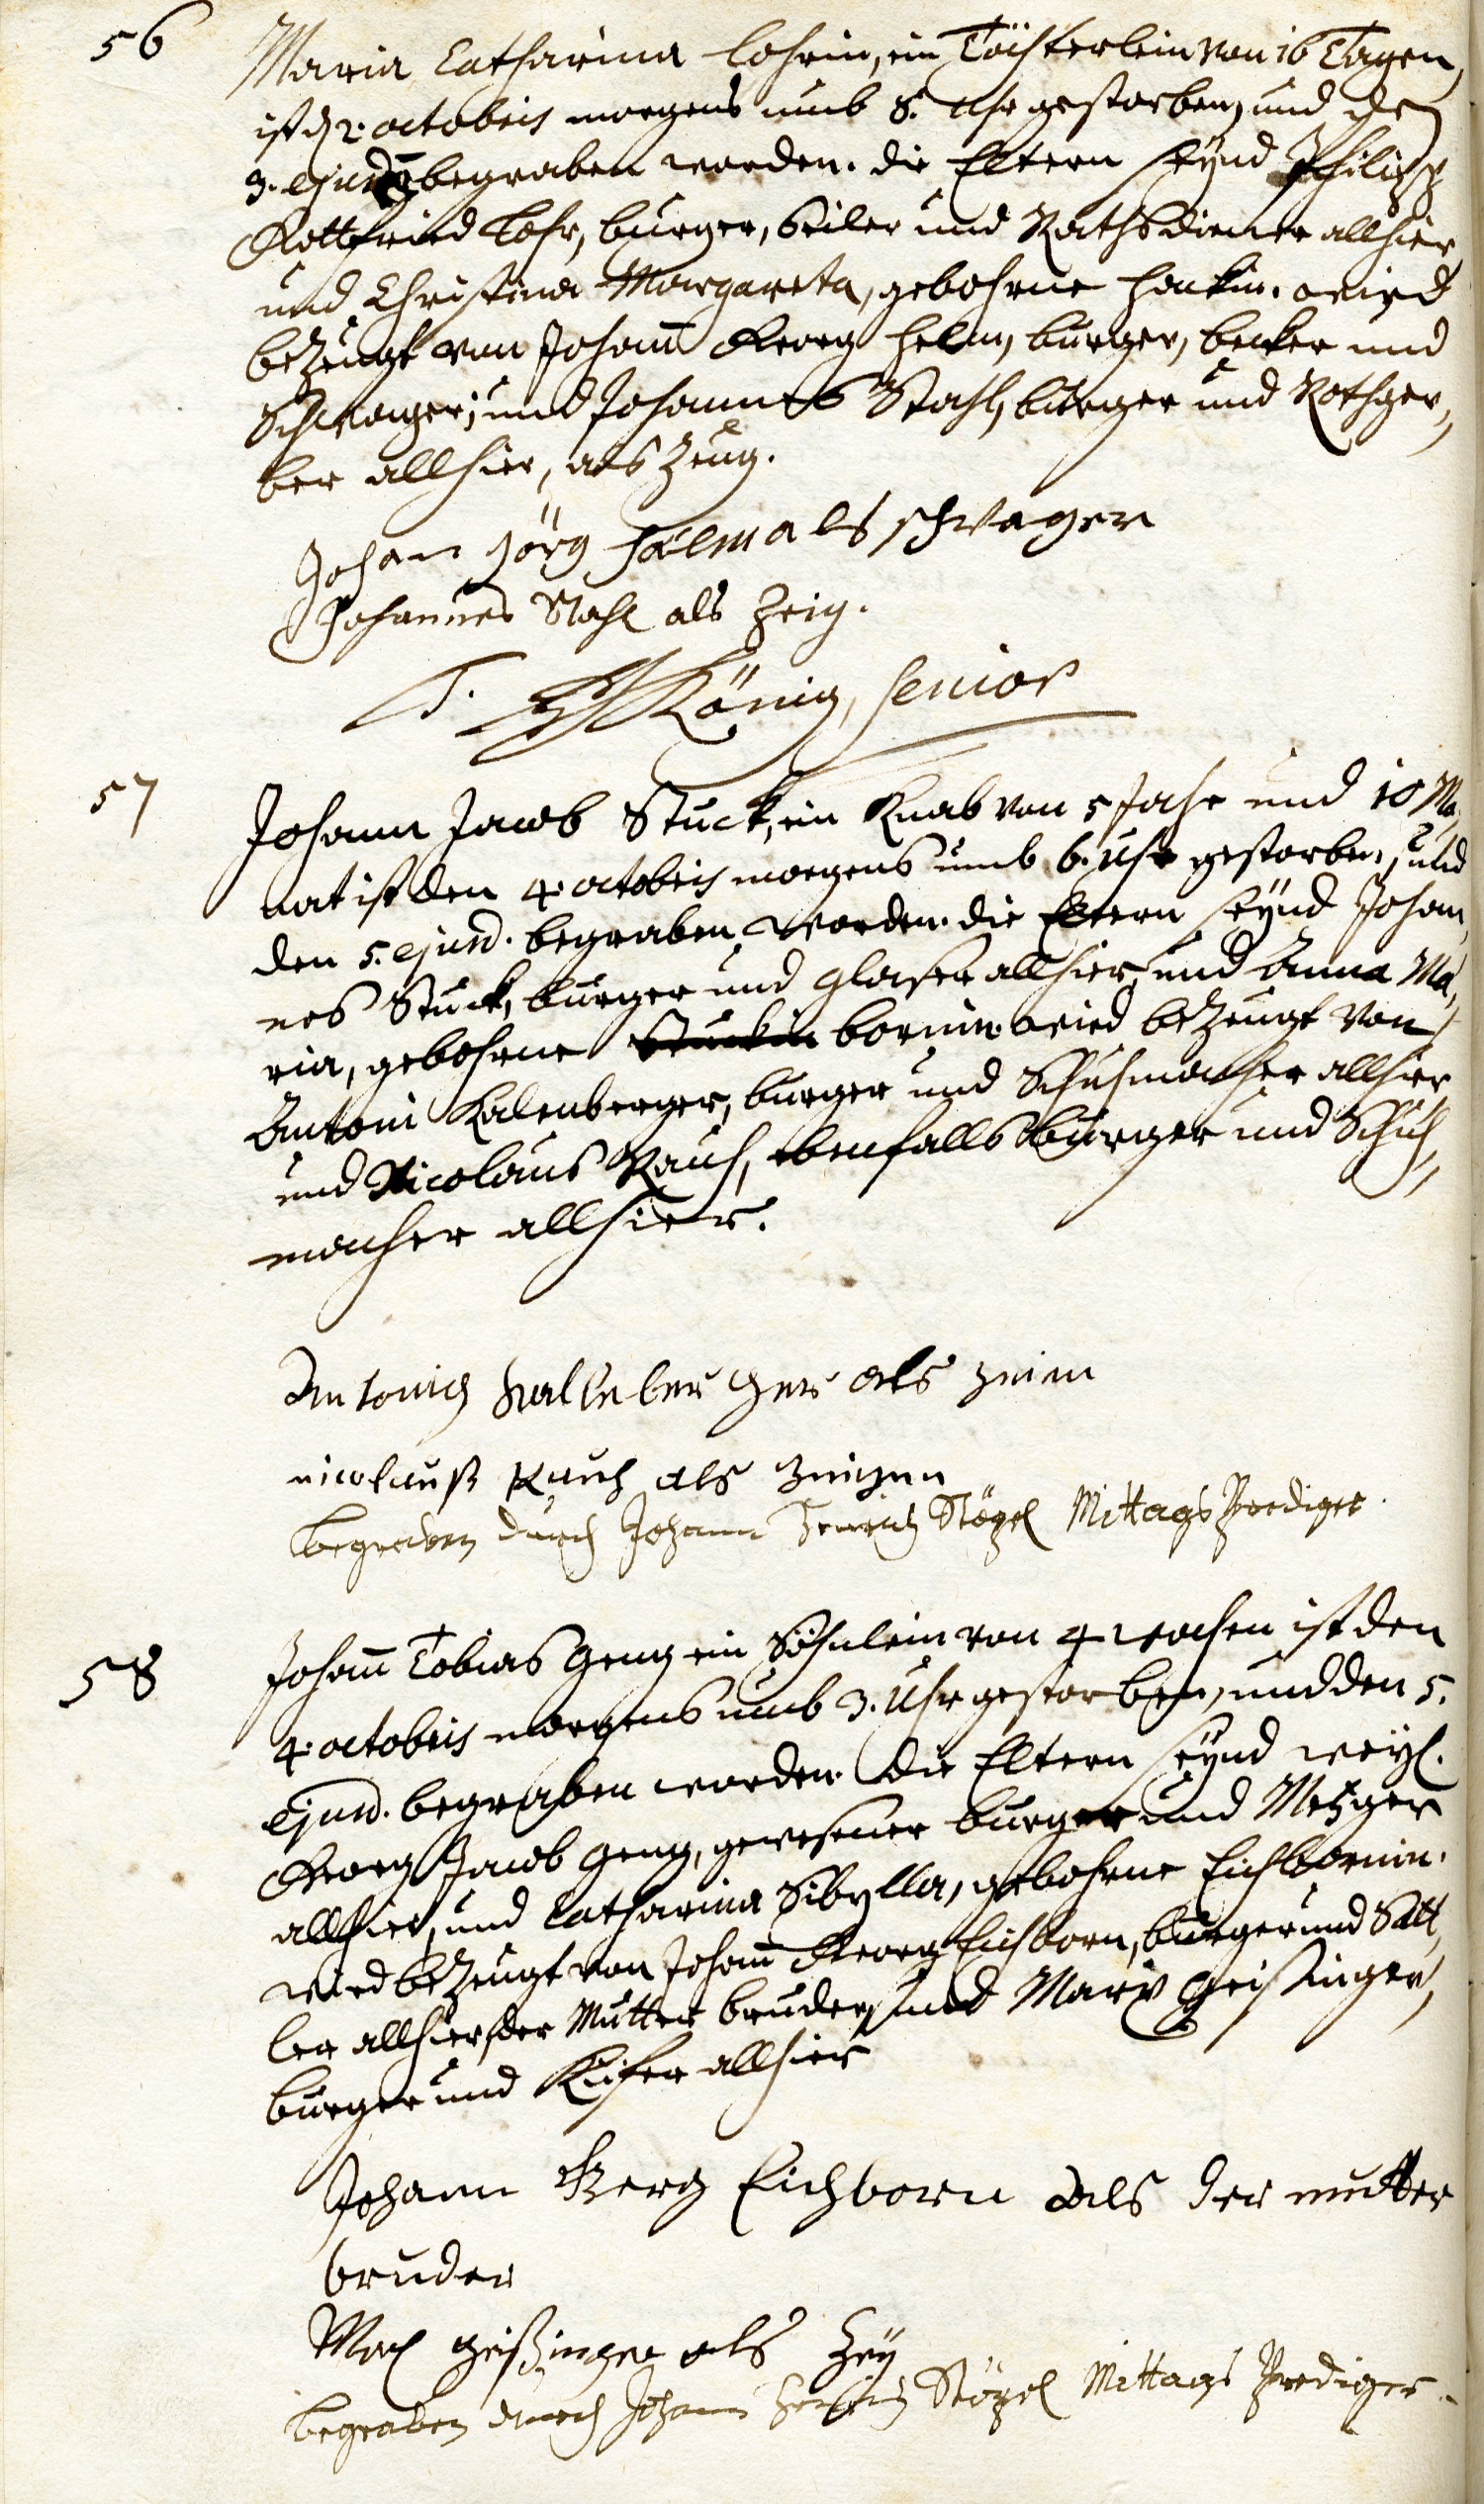 56
Maria Catharina Lohrin, ein Töchterlein von 16 Tagen,
ist d 2. octobris morgens umb 8. Uhr gestorben, und den
3. ejusd. begraben worden. die Eltern seynd Philipp
Gottfried Lohr, burger, Seiler und Rathsdiener allhier
und Christina Margareta, gebohrne Henkin. wird
bezeugt von Johann Georg Helm, burger, becker und
Schwager; und Johannes Stahl, burger und Rothger„
ber allhier, als Zeug.
Johan Jörg Hälm als schwager
Johannes Stahl als Zeig.
König, Senior
57
Johann Jacob Stuck, ein Knab von 5 Jahr und 10 Mo„
nat ist den 4. octobris morgens umb 6. Uhr gestorben, und
den 5. ejusd. begraben worden. die Eltern seynd Johan„
nes Stuck, burger und glaser allhier, und Anna Ma„
ria, gebohrne Stuckin bornin. wird bezeugt von
Antoni Kalenberger, burger und Schuhmacher allhier
und Nicolaus Rauch, ebenfalls burger und Schuh„
macher allhier.
Antonig Halleberger als
nicolauß Rauch als zeigen
begraben durch Johann Henrich Stözel Mittags Prediger.
58
Johann Tobias Geng ein Söhnlein von 4 wochen ist den
4. octobris morgens umb 3. Uhr gestorben, und den 5.
Ejusd. begraben worden. die Eltern seynd weyl.
Georg Jacob Geng, gewesener burger und Metzger
allhier, und Catharina Sibylla, gebohrne Eichbornin.
wird bezeugt von Johann Georg Eichborn, burger und Satt„
ler allhier, der Mutter bruder, und Marx Geissinger,
burger und Kiefer allhier
Johann Georg Eichborn als der mutter
bruder
Max geißinger als Zeÿ
begraben durch Johann Henrich Stözel Mittags Prediger.